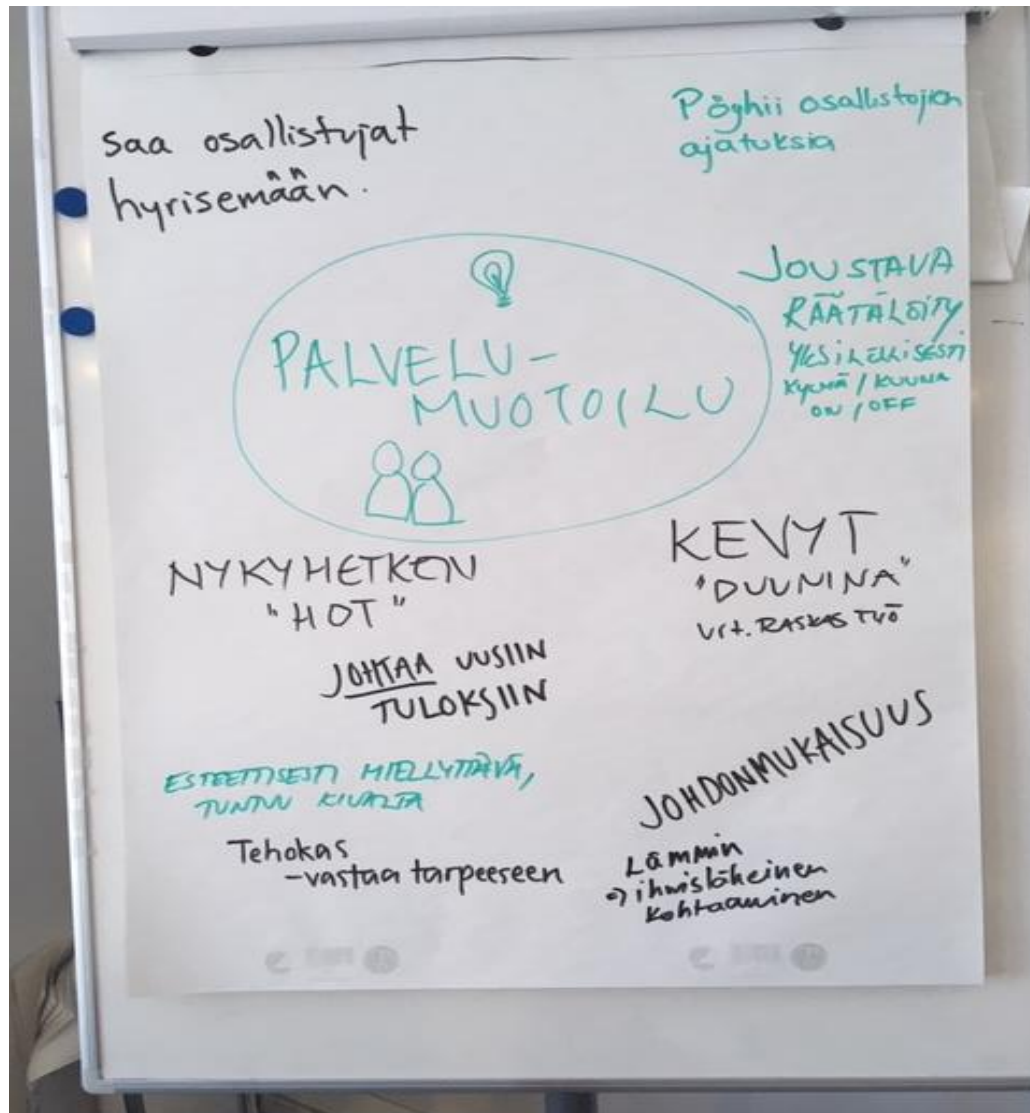 saa osallistujat
hyrisemään.
Pöyhii osallistujien
ajatuksia
PALVELU-
MUOTOILU
JOUSTAVA
RÄÄTÄLÖITY
YKSILÖLLISESTI
KYLMÄ / KUUMA
ON / OFF
NYKYHETKEN
"HOT"
KEVYT
"DUUNINA"
vrt. RASKAS TYÖ
JOHTAA UUSIIN
TULOKSIIN
ESTEETTISESTI MIELLYTTÄVÄ,
TUNTUU KIVALTA
JOHDONMUKAISUUS
Tehokas
-vastaa tarpeeseen
Lämmin
ihmisläheinen
kohtaaminen